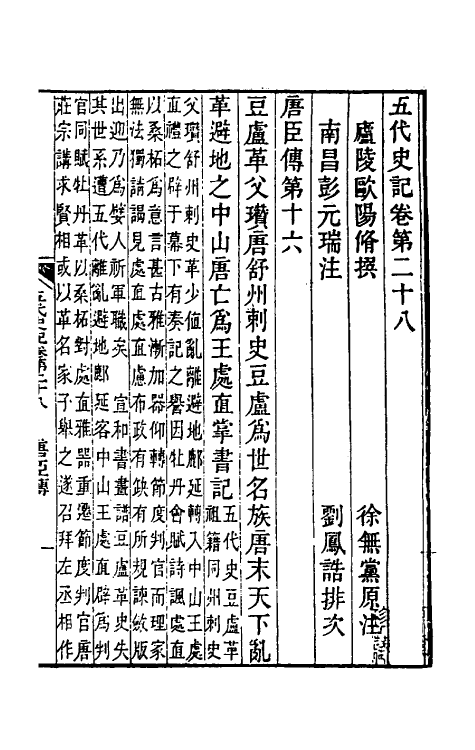 五代史記卷第二十八
廬陵歐陽脩撰　徐無黨原注
南昌彭元瑞注　劉鳳誥排次
唐臣傳第十六
豆盧革父瓚唐舒州刺史豆盧爲世名族唐末天下亂
革避地之中山唐亡爲王處直掌書記
五代史豆盧革
祖籍同州刺史
父瓚舒州刺史革少值亂離避地鄜延轉入中山王處
直禮之辟于幕下有奏記之譽因牡丹會賦詩諷處直
以桑柘爲意言甚古雅漸加器仰轉節度判官而理家
無法獨請謁見處直處直慮布政有缺有所規諫斂版
出迎乃爲嬖人祈軍職矣　宣和書畫譜豆盧革史失
其世系遭五代離亂避地鄜延客中山王處直辟爲判
官同賦牡丹革以桑柘對處直雅器重遷節度判官唐
莊宗講求賢相或以革名家子舉之遂召拜左丞相作
五代史記卷第二十八　唐臣傳　一